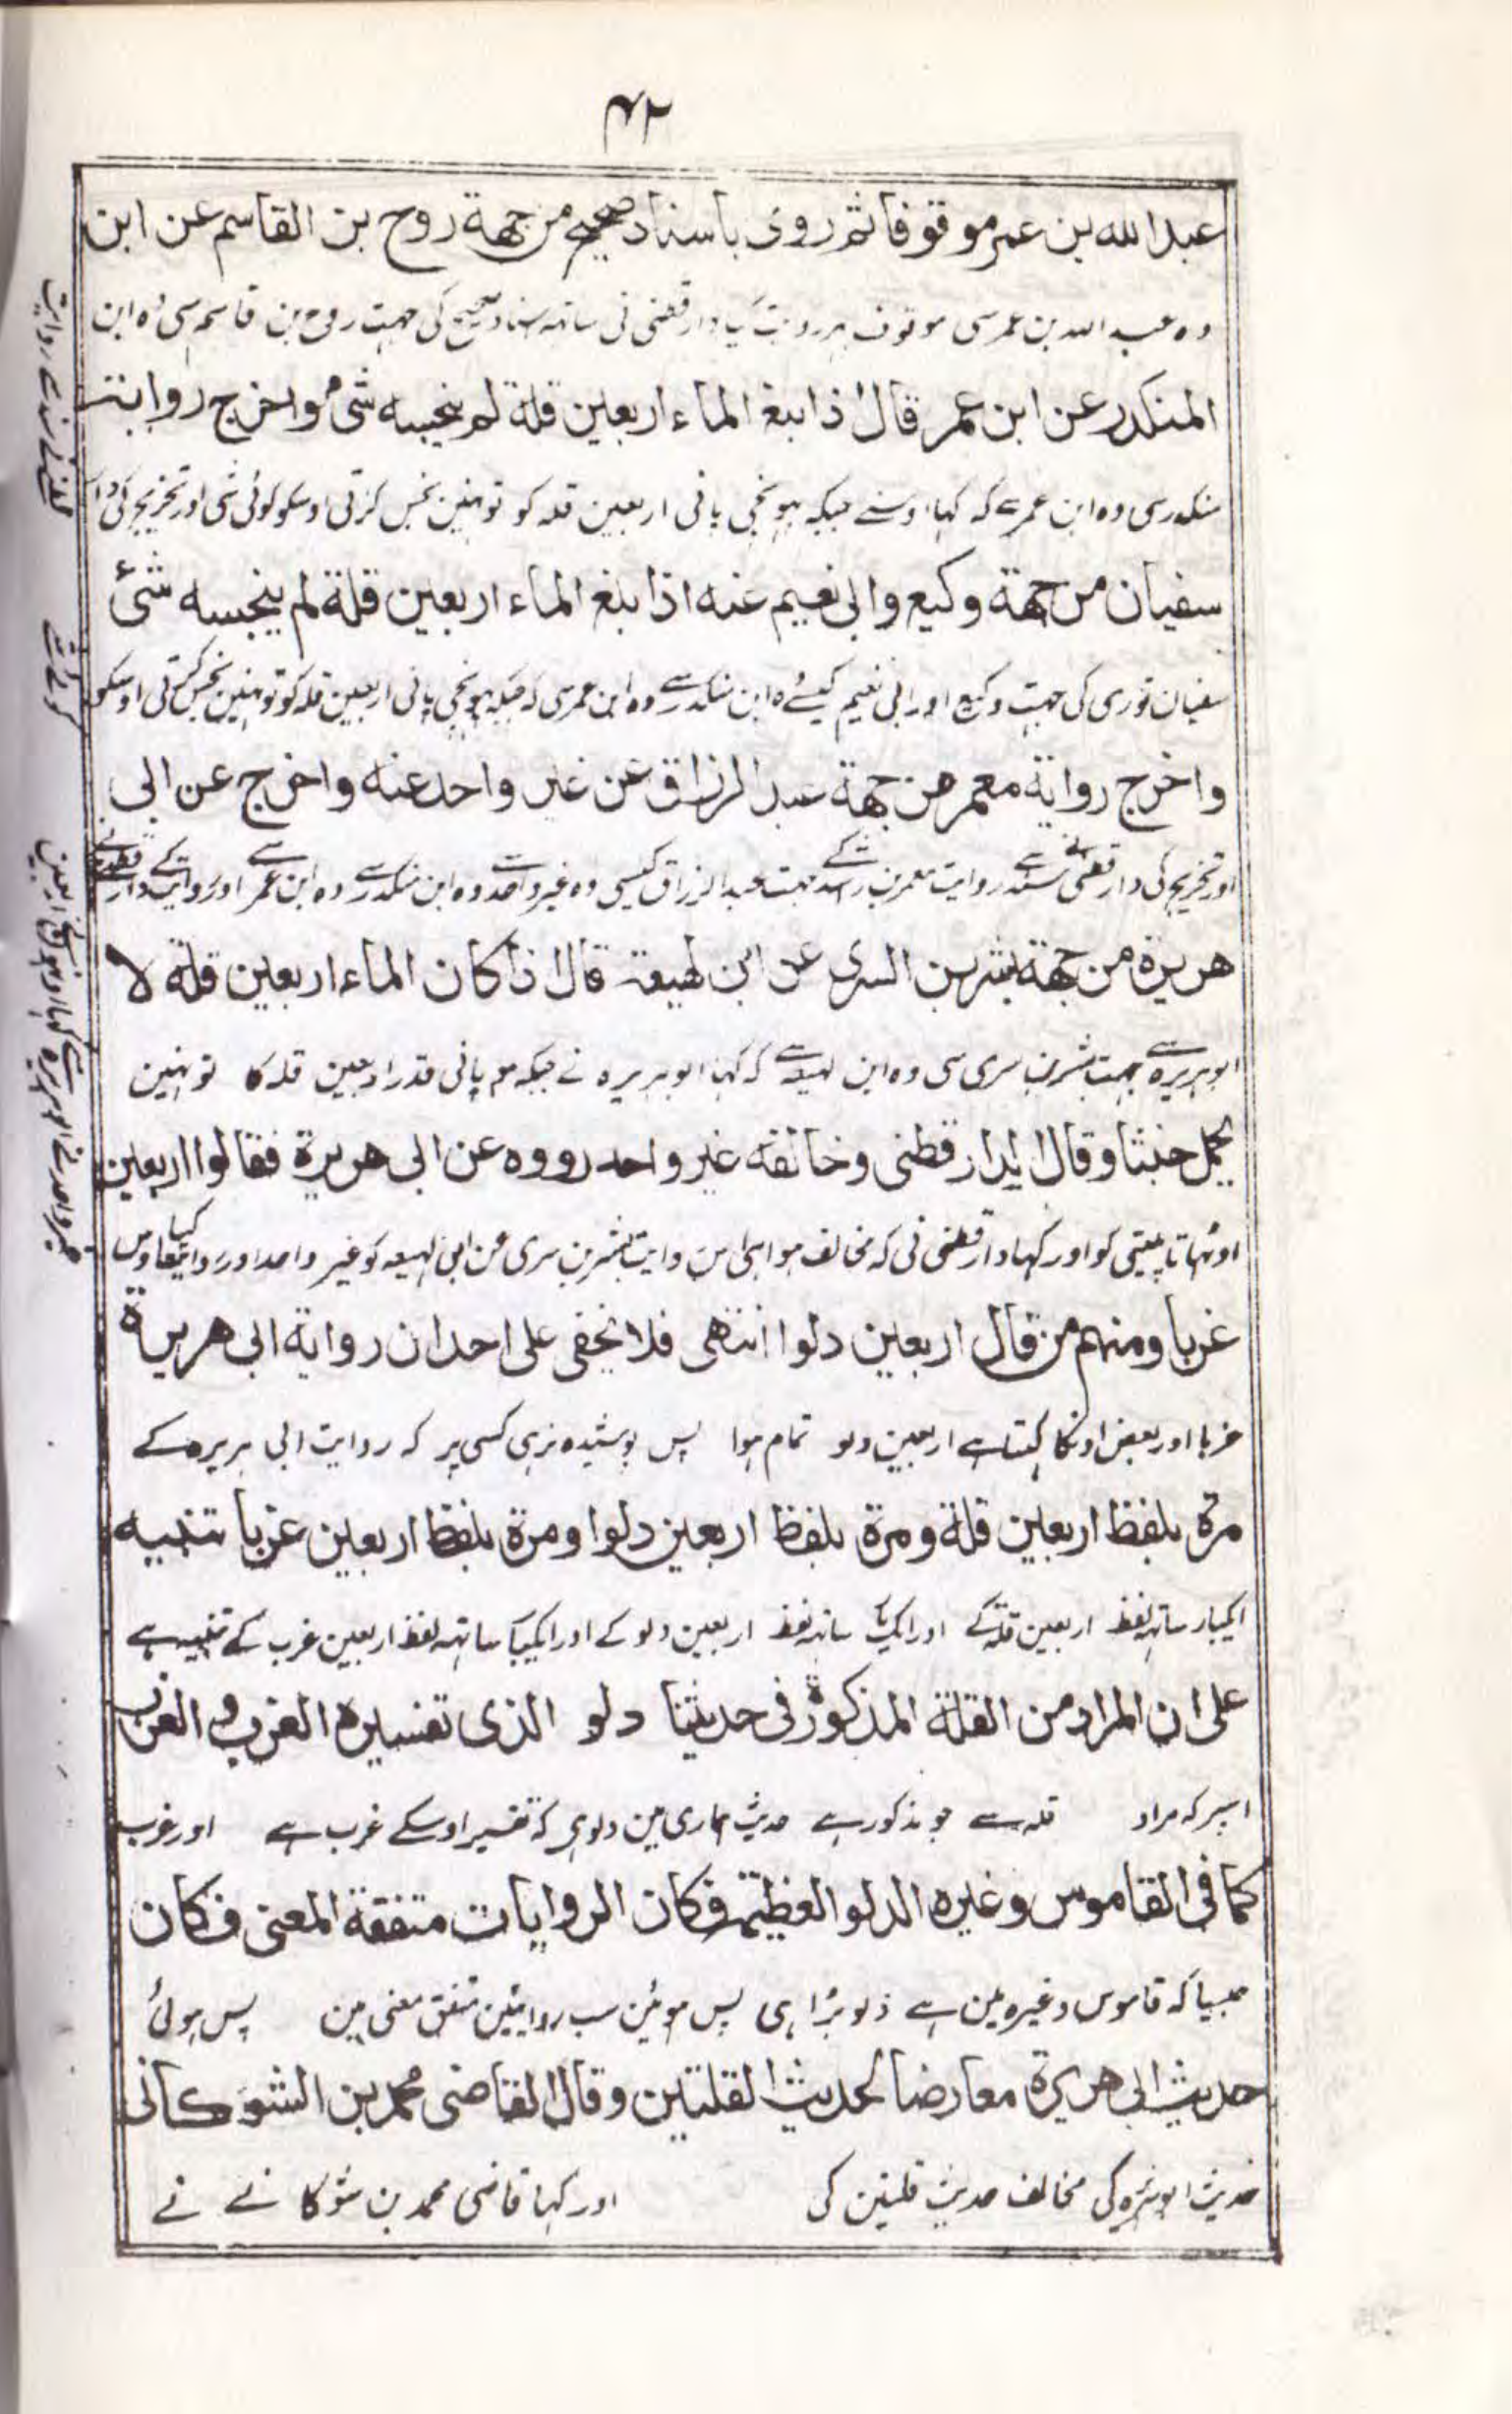 ۴۲
عبد الله بن عمر موقوفا ثم روى باسناد صحيح من جهة روح بن القاسم عن ابن
وہ عبد اللہ بن عمر سی موقوف پہر روایت کیا دارقطنی نی ساتھہ اسناد صحیح کی جہت روح بن قاسم سی وہ ابن
المنكدر عن ابن عمر قال اذا بلغ الماء اربعين قلة لم ينجسه شئ واخرج رواية
منکدر سی وہ ابن عمر سے کہ کہا اوسنے جبکہ پہونچی پانی اربعین قلہ کو تو نہین نجس کرتی اوسکو کوئی شی اور تخریج کی
سفيان من جهة وكيع وابى نعيم عنه اذا بلغ الماء اربعين قلة لم ينجسه شئ
سفیان ثوری کی جہت وکیع اور ابی نعیم کیسے وہ ابن منکدر سے وہ ابن عمر سی کہ جبکہ پہونچی پانی اربعین قلہ کو تو نہین نجس کرتی اوسکو
واخرج رواية معمر من جهة عبد الرزاق عن غير واحد عنه واخرج عن ابى
اور تخریج کی دارقطنی نے روایت معمر بن راشد کے جہت عبد الرزاق کیسی وہ غیر واحد سے وہ ابن منکدر سے وہ ابن عمر سے اور روایت کے دارقطنی نے
هريرة من جهة بشر بن السرى عن ابن لهيعة قال اذا كان الماء اربعين قلة لا
ابو ہریرہ سے بجہت بشر بن سری سی وہ ابن لہیعہ سے کہ کہا ابو ہریرہ نے جبکہ ہو پانی قدر اربعین قلہ کا تو نہین
يحمل خبثا وقال الدارقطنى وخالفه غير واحد رووه عن ابى هريرة فقالوا اربعين
اوٹہاتا پلیتی کو اور کہا دارقطنی نی کہ مخالف ہوا ہی اس روایت بشر بن سری عن ابن لہیعہ کو غیر واحد اور روایت کیا
غربا ومنهم من قال اربعين دلوا انتهى فلا يخفى على احد ان رواية ابى هريرة
غربا اور بعض اونکا کہتا ہے اربعین دلو تمام ہوا پس پوشیدہ نرہی کسی پر کہ روایت ابی ہریرہ کے
مرة بلفظ اربعين قلة ومرة بلفظ اربعين دلوا ومرة بلفظ اربعين غربا تنبيه
ایکبار ساتھہ لفظ اربعین قلہ کے اور ایکبار ساتھہ لفظ اربعین دلو کے اور ایکبار ساتھہ لفظ اربعین غرب کے تنبیہ ہے
على ان المراد من القلة المذكورة فى حديثنا دلو الذى تفسيره الغرب والغرب
اسپر کہ مراد قلہ سے جو مذکور ہے حدیث ہماری مین دلو ہی کہ تفسیر اوسکے غرب ہے اور غرب
كما فى القاموس وغيره الدلو العظيمة فكان الروايات متفقة المعنى فكان
جیسا کہ قاموس وغیرہ مین ہے دلو بڑا ہی پس ہوئین سب روایتین متفق معنی مین پس ہوئی
حديث ابى هريرة معارضا لحديث القلتين وقال القاضى محمد بن الشوكانى
حدیث ابو ہریرہ کی مخالف حدیث قلتین کی اور کہا قاضی محمد بن شوکا نے نے